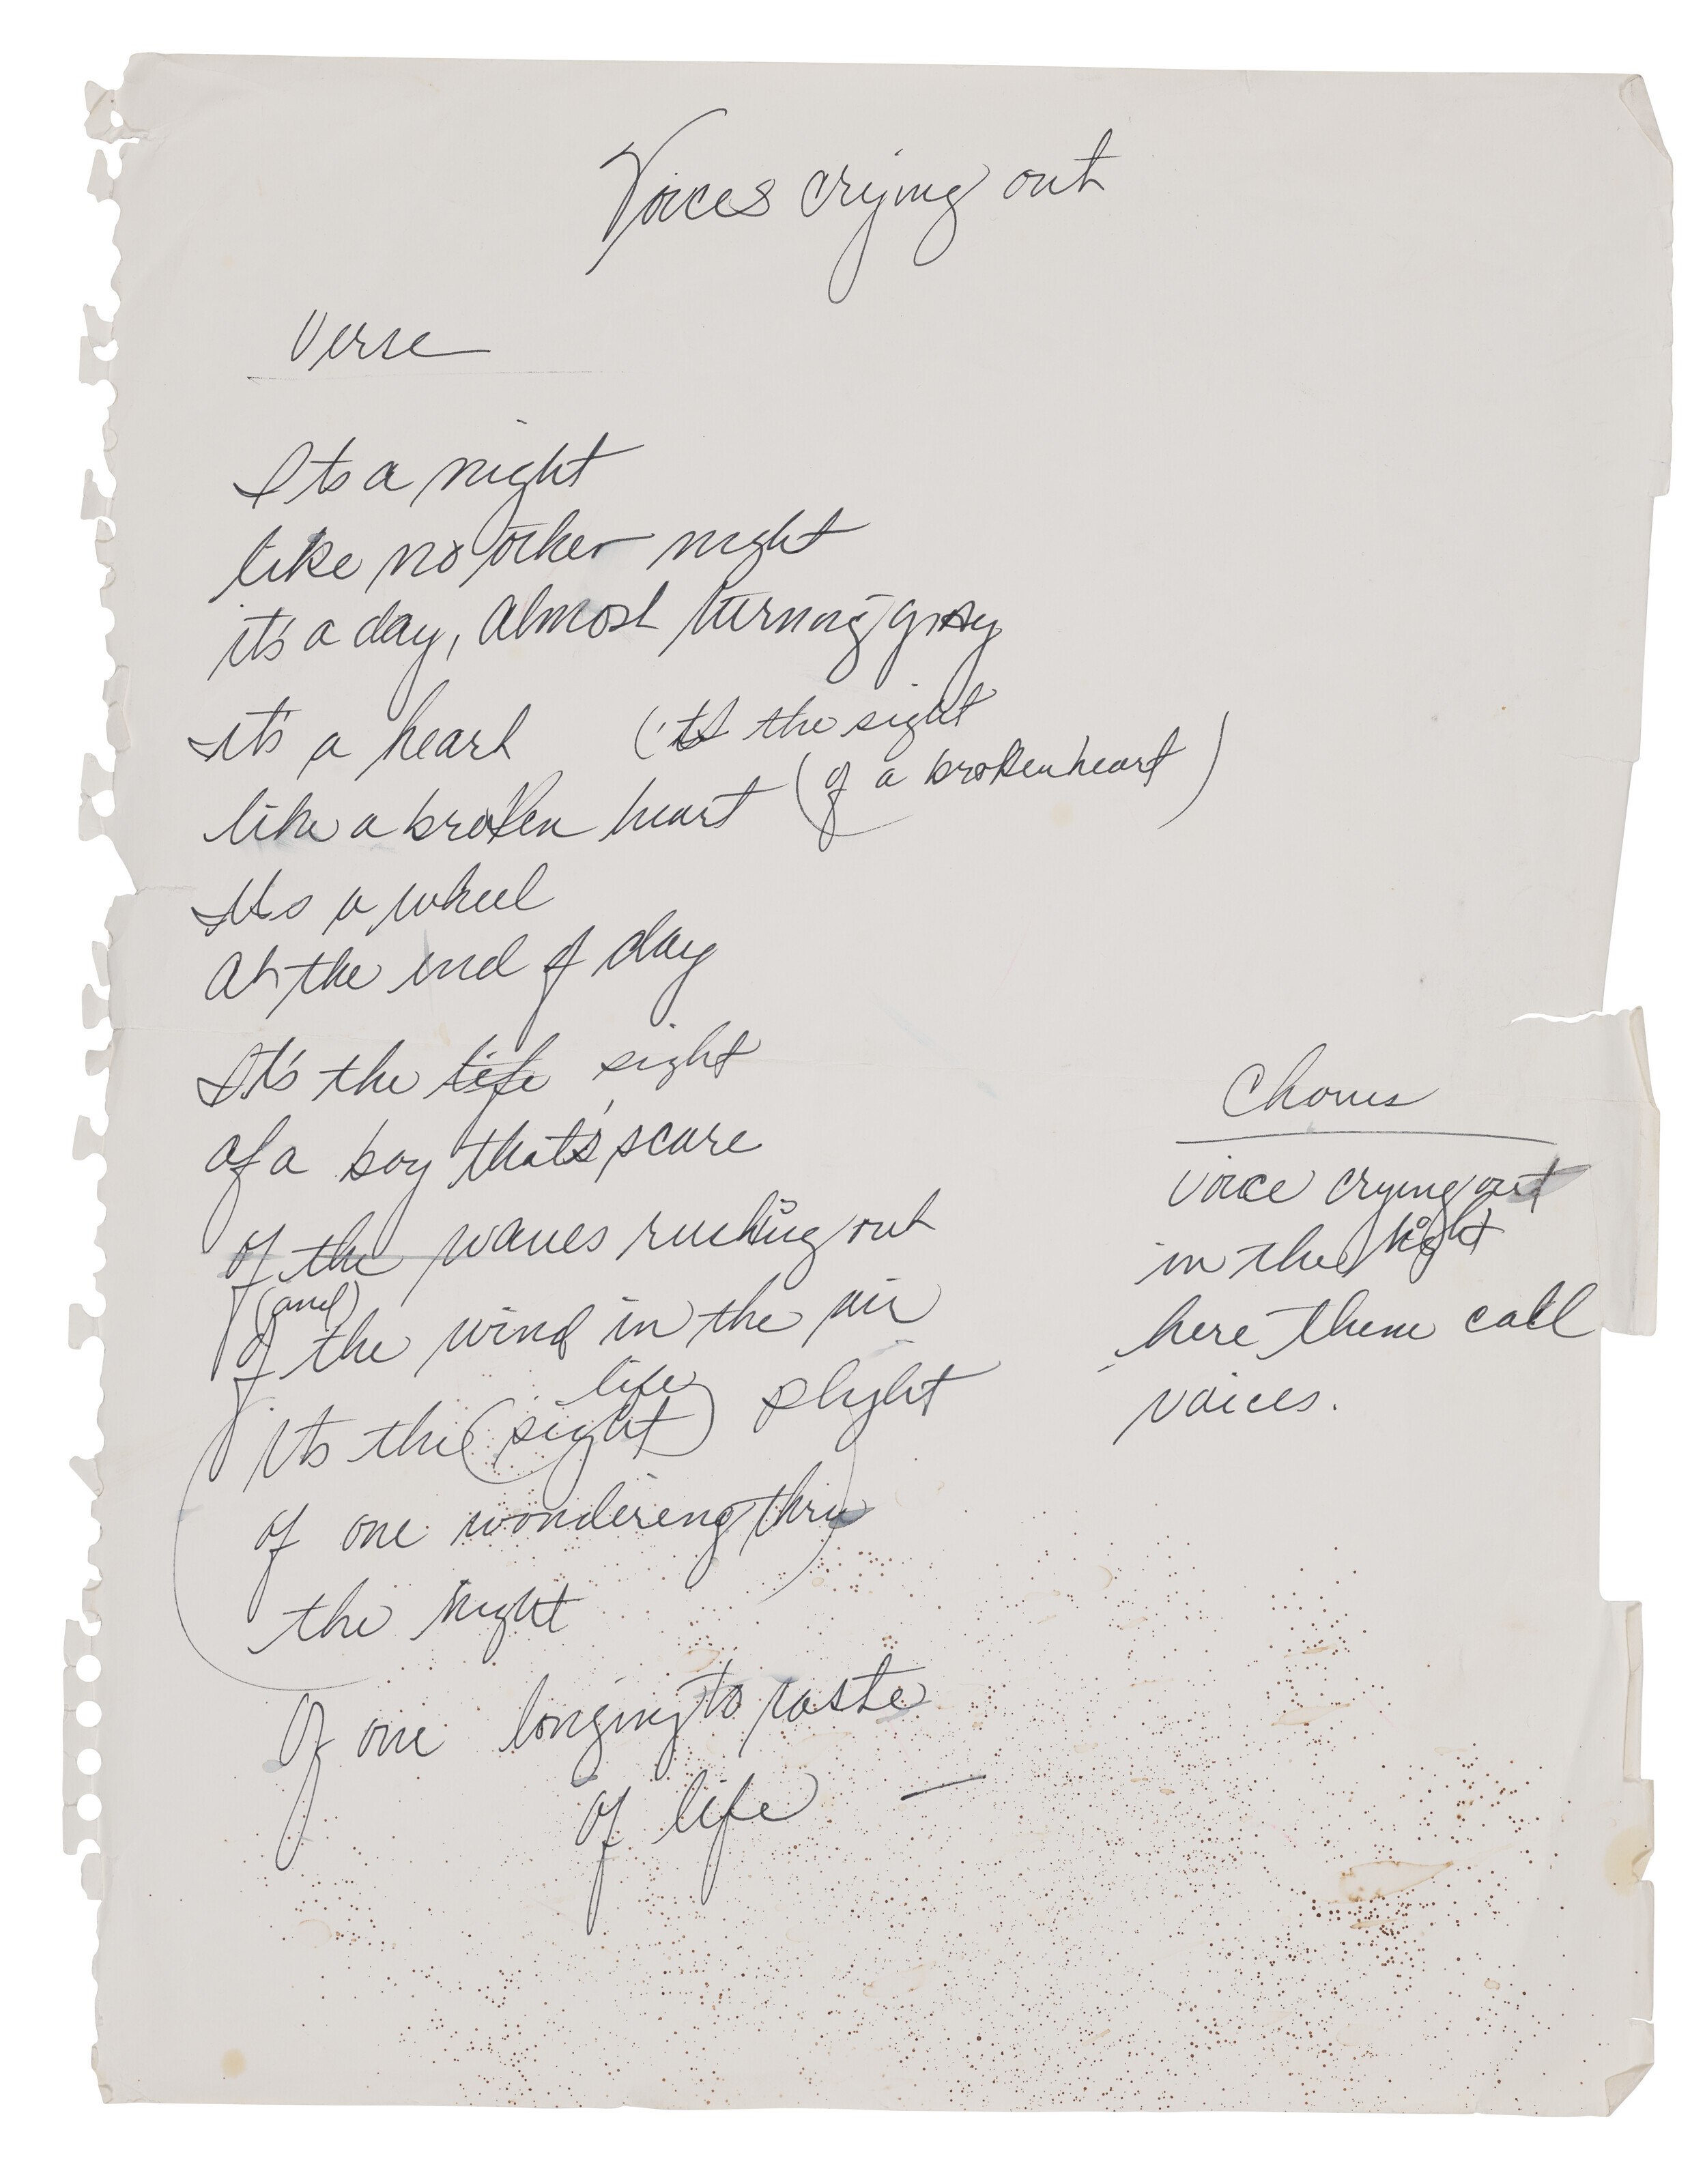 Voices crying out
Verse
Its a night
like no other night
it's a day, almost turning gray
it's a heart (it's the sight
like a broken heart (of a broken heart)
Its a wheel
at the end of day
It's the life sight
of a boy that's scare
of the waves rushing out
(and)
of the wind in the air
life
its the (sight) plight
of one wondereng thru
the night
Of one longing to taste
of life —
Chorus
voice crying out
in the night
here them call
voices.